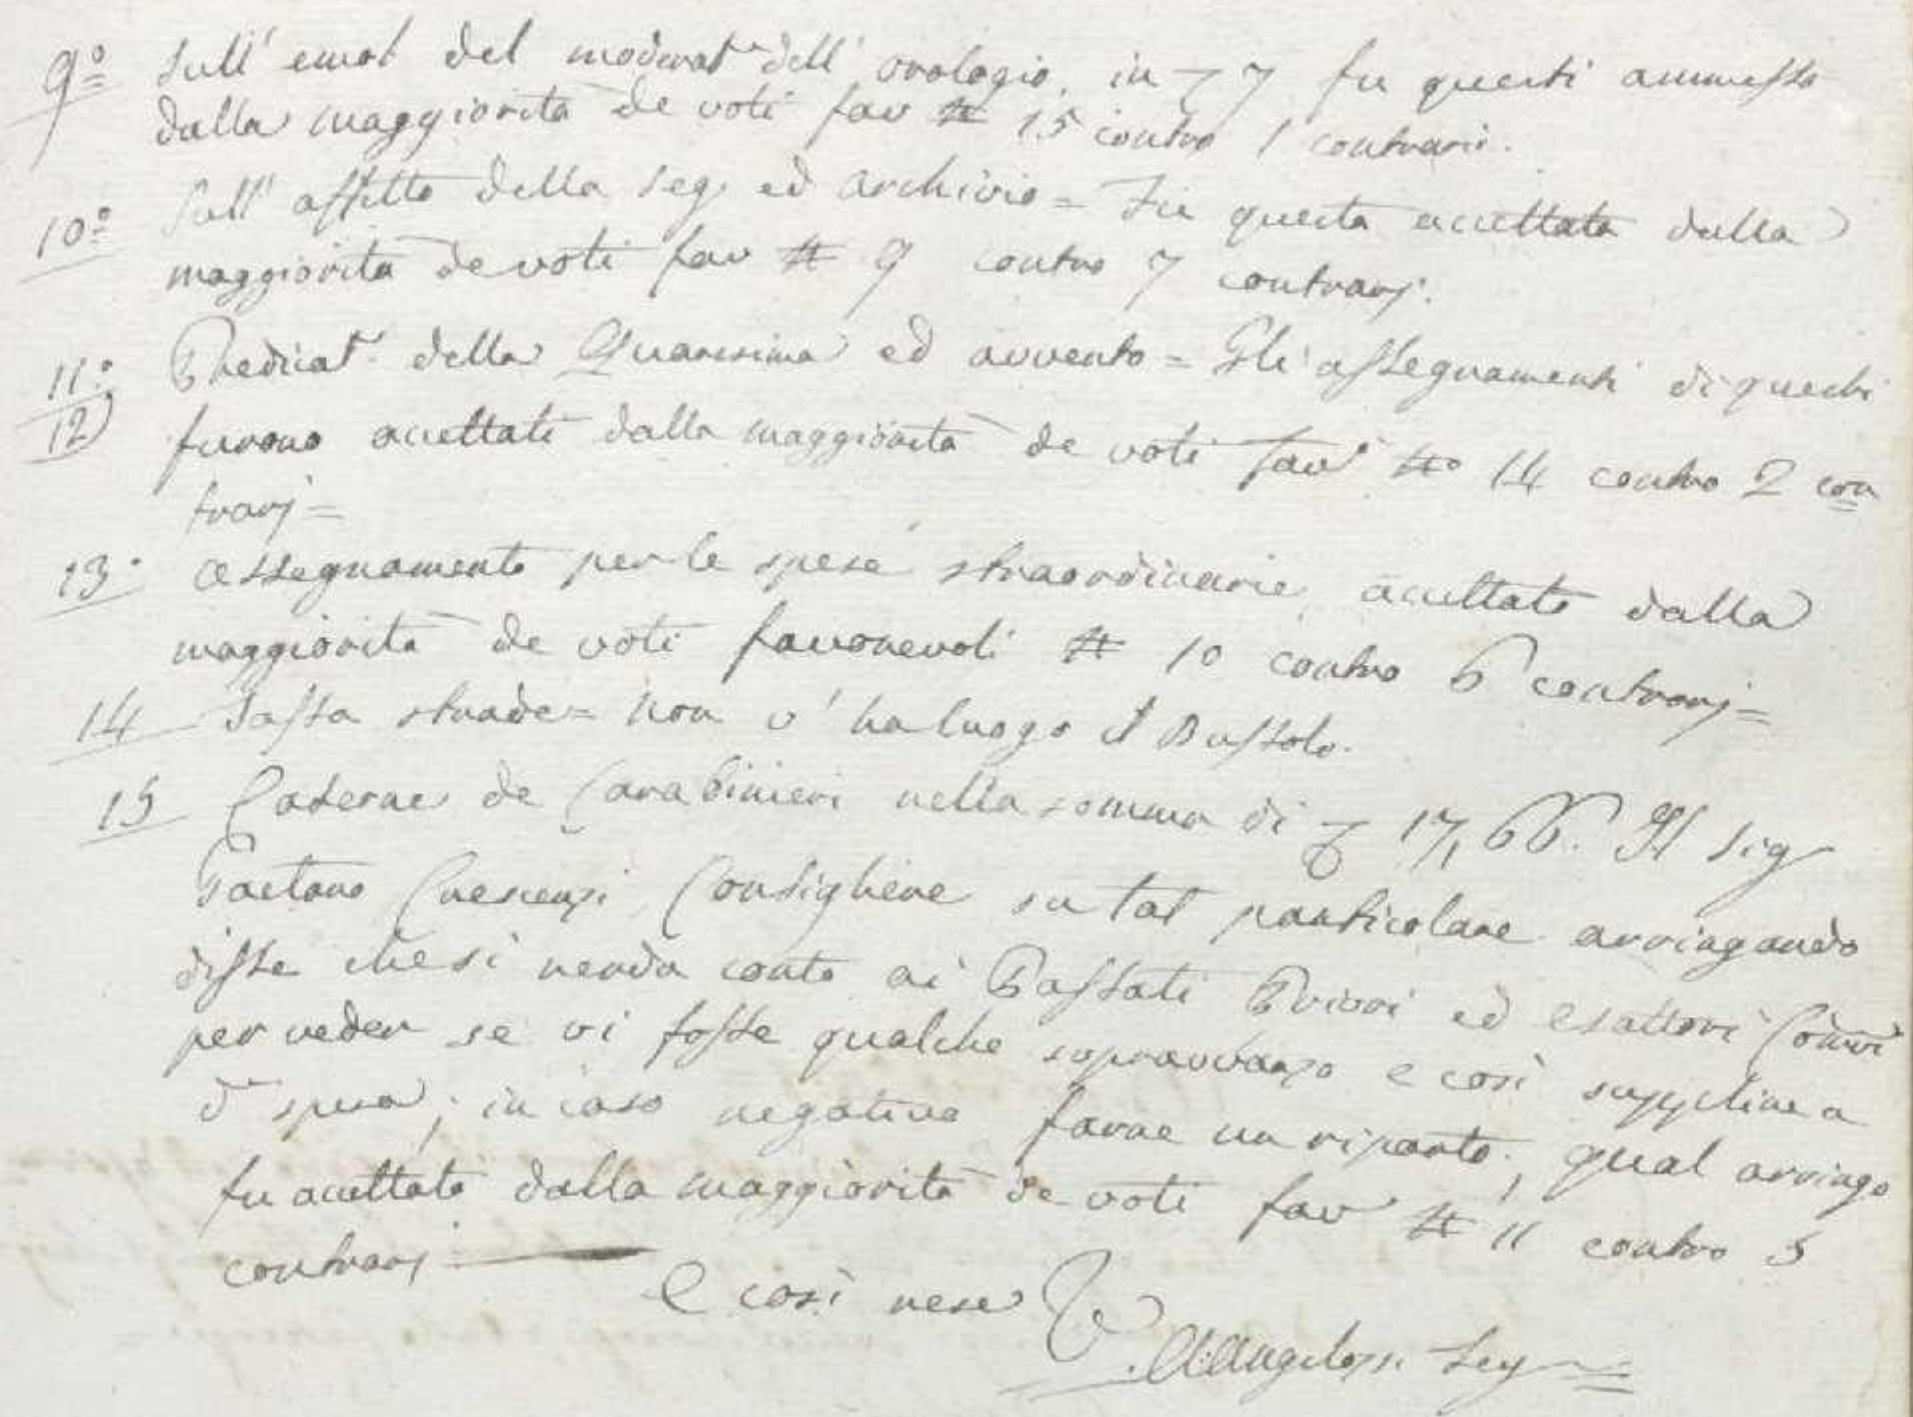 9º Sull' emol del moderat dell' orologio, in 7 fu questi ammesso
dalla maggiorità de voti fav N 15 contro 1 contrario.
10º Sull' affitto della Seg ed archivio = Fu questa accettata dalla
maggiorità de voti fav N 9 contro 7 contrarj.
11º Predicat della Quaresima ed avvento = Gli assegnamenti di questi
12 furono accettati dalla maggiorità de voti fav Nº 14 contro 2 con
trarj =
13º assegnamento per le spese straordinarie accettato dalla
maggiorità de voti favorevoli N 10 contro 6 contrarj =
14 Tassa strade = non v' ha luogo il Bussolo.
15 Caserne de Carabinieri nella somma di 17,66. Il Sig
Gaetano Crescenzi Consigliere su tal particolare arringando
disse che si renda conto ai Passati Priori ed esattori Comvi
per veder se vi fosse qualche sopravvanzo e così supplire a
d spesa; in caso negativo farne un riparto; qual arringo
fu accettato dalla maggiorità de voti fav N 11 contro 5
contrarj
E così rese
Angelozzi Seg